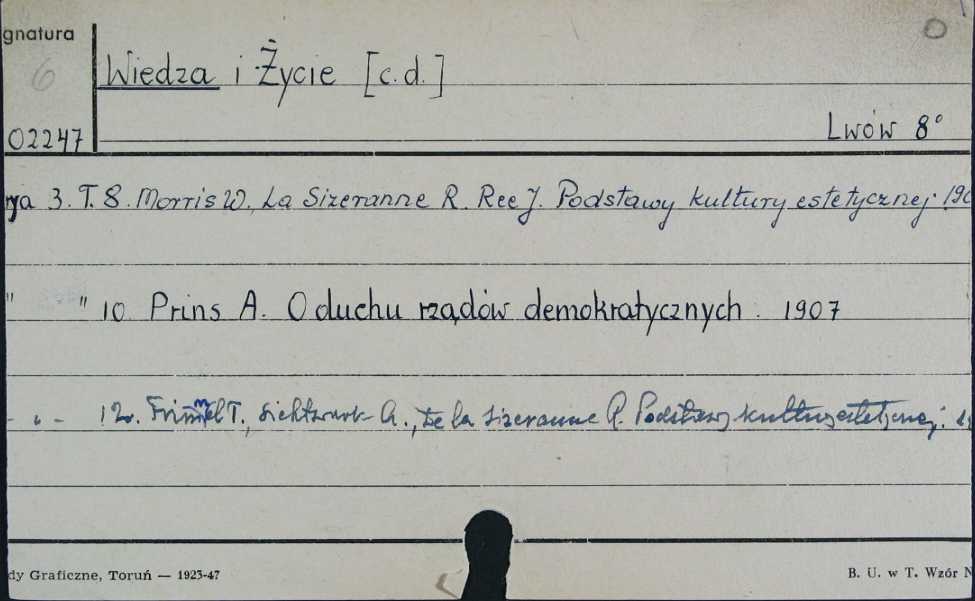 gnatura
6 Wiedza i Życie [c.d.]
02247 Lwów 8°
ya 3. T. 8. Morris W., La Sizeranne R. Ree J. Podstawy kultury estetycznej. 190
" " 10 Prins A. O duchu rządów demokratycznych. 1907
- " - 12. Frimmel T., Lichtwark A., De la Sizeranne R. Podstawy kultury estetycznej.
dy Graficzne, Toruń — 1923-47
B. U. w T. Wzór N